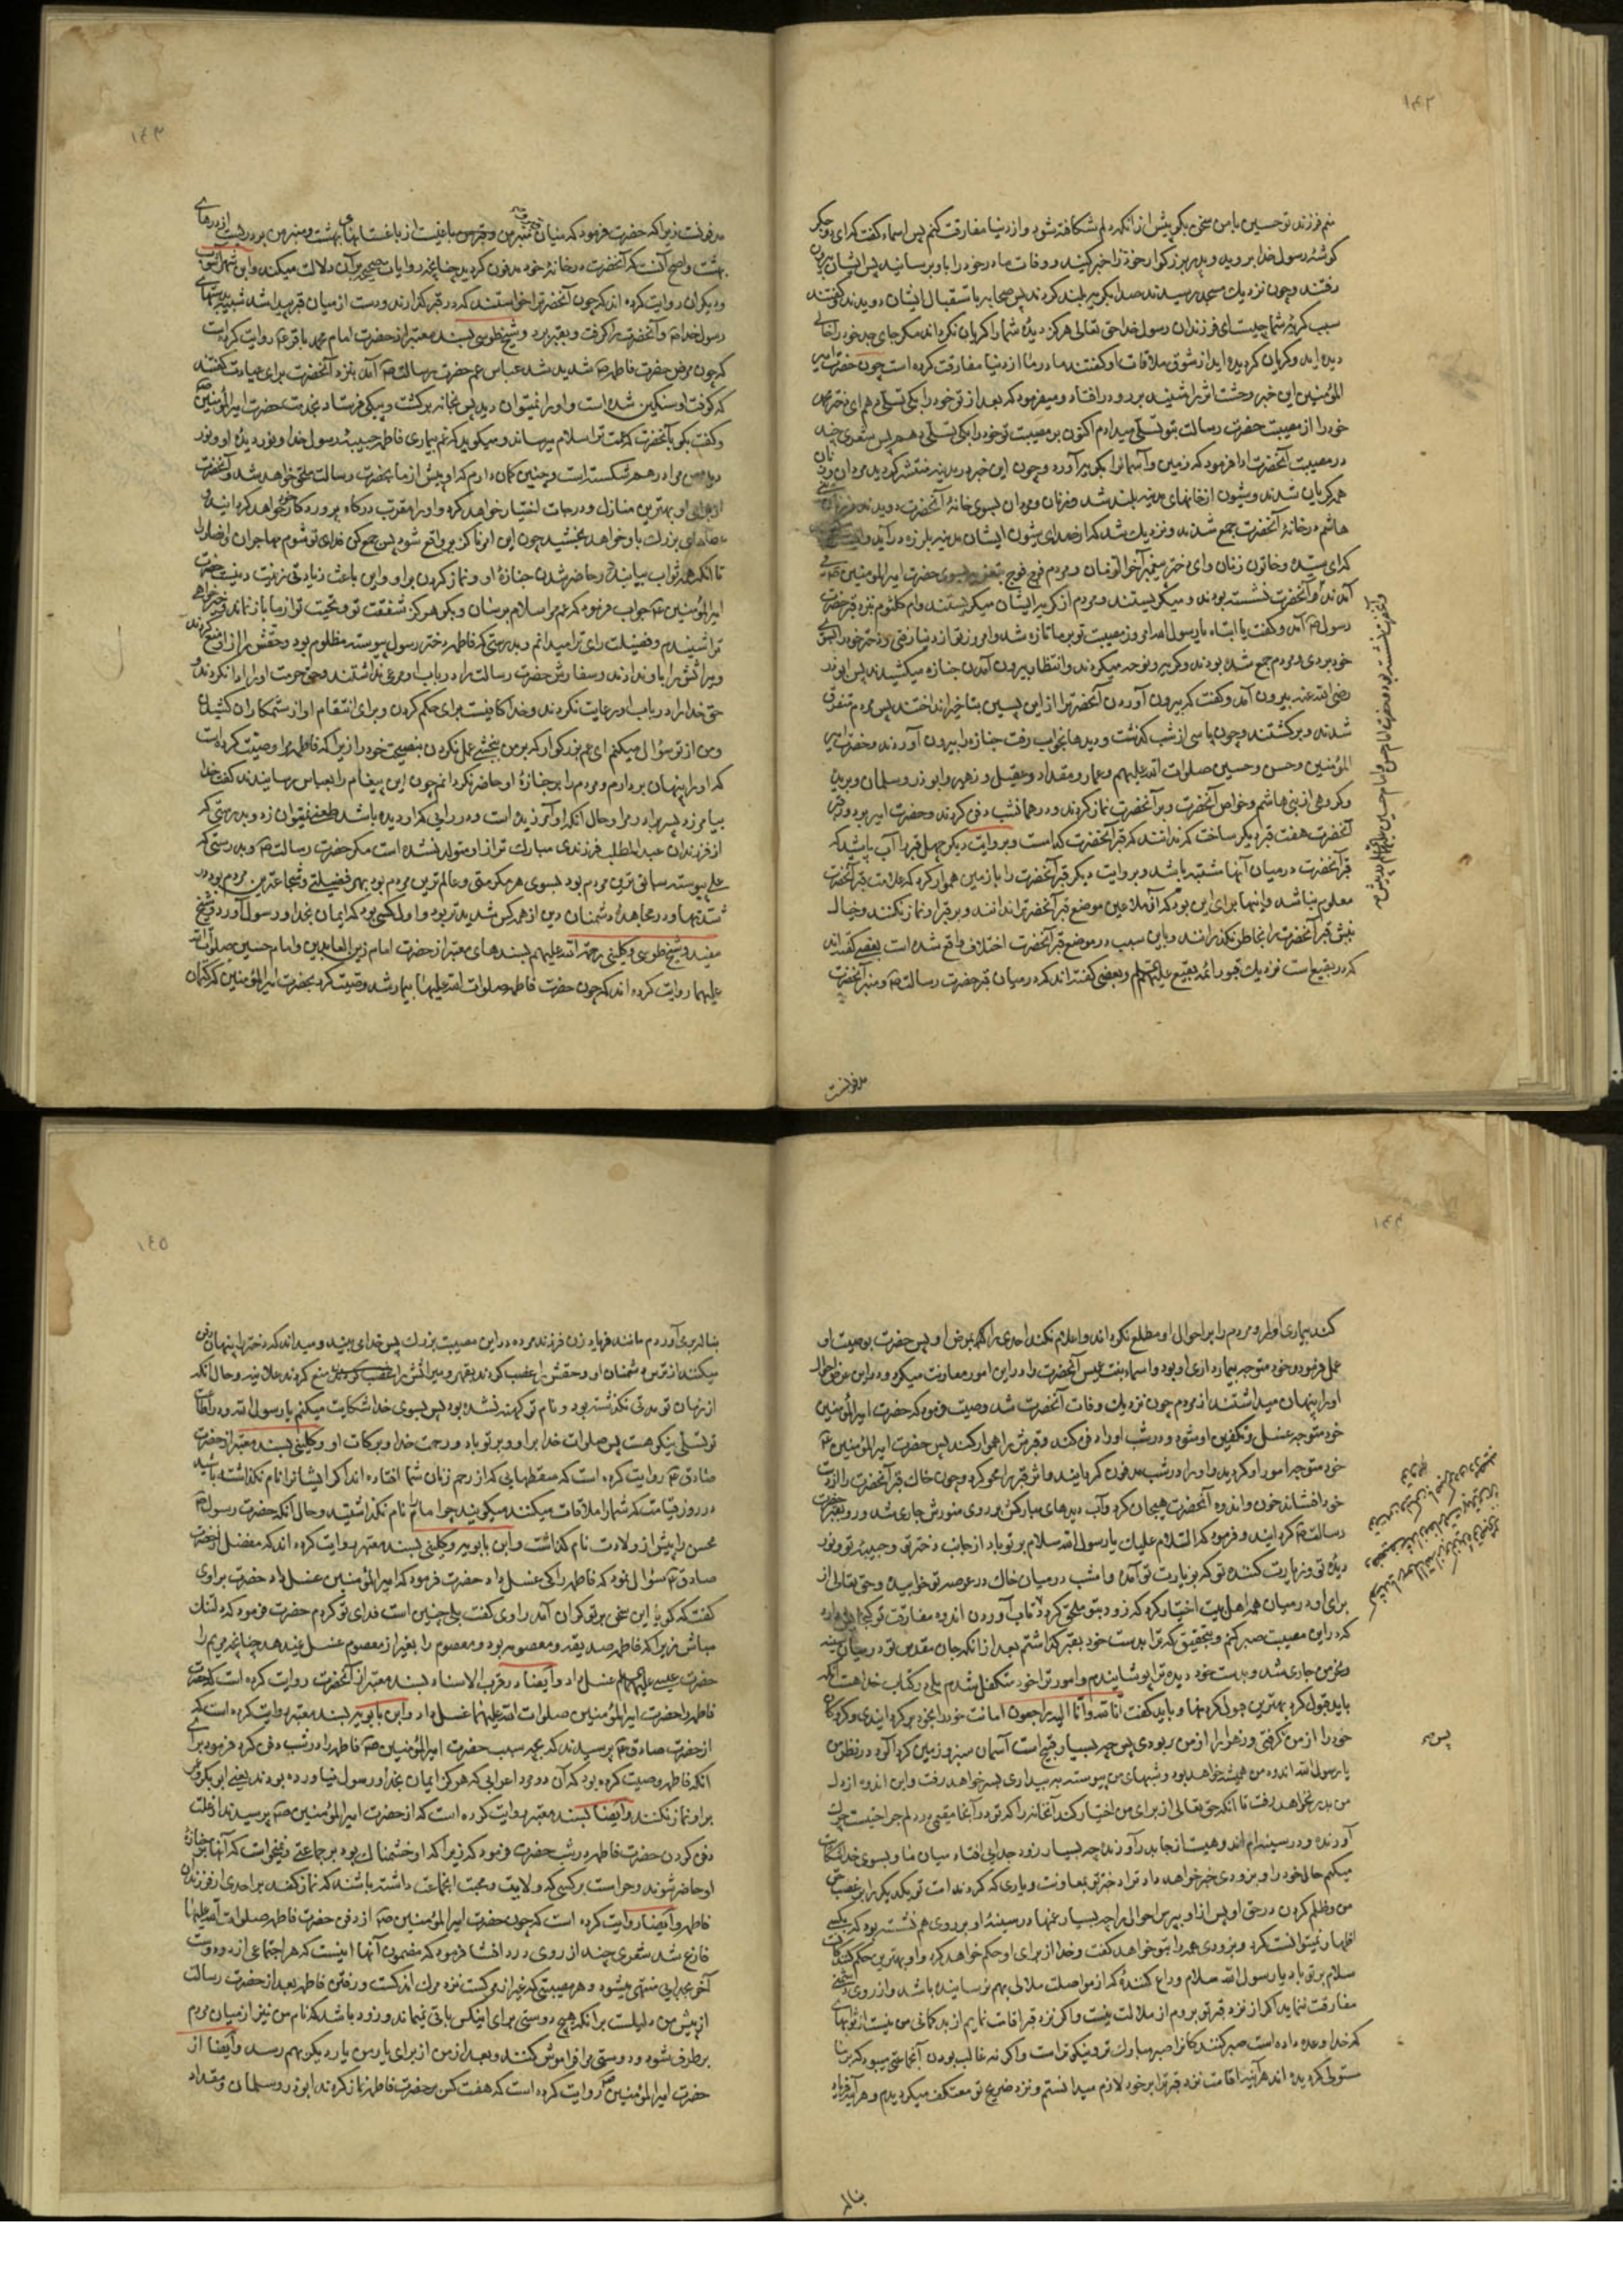 ١٤٢
منم فرزند تو حسین با من سخن بگو پیش از آنکه دلم شکافته شود و از دنیا مفارقت کنم پس اسماء گفت که ای دو جگر
گوشهٔ رسول خدا بروید و پدر بزرگوار خود را خبر کنید و وفات مادر خود را باو برسانید پس ایشان بیرون
رفتند و چون نزدیك مسجد رسیدند صدا بگریه بلند کردند پس صحابه باستقبال ایشان دویدند و گفتند
سبب گریهٔ شما چیست ای فرزندان رسول خدا حق تعالی هرگز دیدهٔ شما را گریان نگرداند مگر جای جد خود را خالی
دیده‌اید و گریان گردیده‌اید از شوق ملاقات او گفتند مادر ما از دنیا مفارقت کرده است چون حضرت امیر
المؤمنین این خبر وحشت اثر را شنید بر رو در افتاد و میفرمود که بعد از تو خود را بکی تسلی دهم ای دختر محمد
خود را از مصیبت حضرت رسالت بتو تسلی میدادم اکنون بر مصیبت تو خود را بکی تسلی دهم پس شعری چند
در مصیبت آنحضرت ادا فرمود که زمین و آسمانرا بگریه آورد و چون این خبر در مدینه منتشر گردید مردان و زنان
همه گریان شدند و شیون از خانهای مدینه بلند شد و زنان و مردان بسوی خانهٔ آنحضرت دویدند و زنان بنی
هاشم در خانهٔ آنحضرت جمع شدند و نزدیك شد که از صدای شیون ایشان مدینه بلرزه در آید و
که ای سیده و خاتون زنان و ای دختر پیغمبر آخر الزمان و مردم فوج فوج بتعزیه بسوی حضرت امیر المؤمنین می
آمدند و آنحضرت نشسته بودند و میگریستند و مردم از گریهٔ ایشان میگریستند و ام کلثوم نزد قبر حضرت
رسول ص آمد و گفت یا ابتاه یا رسول الله امروز مصیبت تو بر ما تازه شد و امروز تو از دنیا رفتی و دختر خود را بسوی
خود بردی و مردم جمع شده بودند و گریه و نوحه میکردند و انتظار بیرون آمدن جنازه میکشیدند پس ابوذر
رضی الله عنه بیرون آمد و گفت که بیرون آوردن آنحضرترا از این پسین بتاخیر انداختند پس مردم متفرق
شدند و برگشتند و چون پاسی از شب گذشت و دیدها بخواب رفت جنازه را بیرون آوردند و حضرت امیر
المؤمنین و حسن و حسین صلوات الله علیهم و عمار و مقداد و عقیل و زهیر و ابوذر و سلمان و بریده
و گروهی از بنی هاشم و خواص آنحضرت و بر آنحضرت نماز کردند و در همان شب دفن کردند و حضرت امیر بر دور قبر
آنحضرت هفت قبر دیگر ساخت که ندانند که قبر آنحضرت کدامست و بروایت دیگر چهل قبر را آب پاشید که
قبر آنحضرت در میان آنها مشتبه باشد و بروایت دیگر قبر آنحضرت را با زمین هموار کرد که علامت قبر آنحضرت
معلوم نباشد و اینها برای این بود که آن ملاعین موضع قبر آنحضرترا ندانند و بر قبر او نماز نکنند و خیال
نبش قبر آنحضرت را بخاطر نگذرانند و باین سبب در موضع قبر آنحضرت اختلاف واقع شده است بعضی گفته‌اند
که در بقیع است نزدیك قبور ائمهٔ بقیع علیهم السلام و بعضی گفته‌اند که در میان قبر حضرت رسالت ص و منبر آنحضرت
مدفونست
و آنحضرت نشسته بود و حضرت امام حسن و امام حسین علیهما السلام در پیش
١٤٣
مدفونست زیرا که حضرت فرمود که میان قبر من و منبر من باغیست از باغستانهای بهشت و منبر من بر دریست از درهای
بهشت و اصح آنست که آنحضرت در خانهٔ خود مدفون گردید چنانچه روایات صحیحه بر آن دلالت میکند و ابن شهر آشوب
و دیگران روایت کرده‌اند که چون آنحضرترا خواستند که در قبر گذارند دو دست از میان قبر پیدا شد شبیه بدستهای
رسول خدا ص و آنحضرت را گرفت و بقبر برد و شیخ طوسی بسند معتبر از حضرت امام محمد باقر ع روایت کرده است
که چون مرض حضرت فاطمه ص شدید شد عباس عم حضرت رسالت ص آمد بنزد آنحضرت برای عیادت گفتند
که کوفت او سنگین شده است و او را نمیتوان دید پس بخانه برگشت و پیکی فرستاد بخدمت حضرت امیر المؤمنین
و گفت بگو بآنحضرت که عمت ترا سلام میرساند و میگوید که غم بیماری فاطمه حبیبهٔ رسول خدا و نور دیدهٔ او و نور
دیدهٔ من مرا در هم شکسته است و چنین گمان دارم که او پیش از ما بحضرت رسالت ملحق خواهد شد و آنحضرت
از برای او بهترین منازل و درجات اختیار خواهد کرد و او را مقرب درگاه پروردگار خود خواهد گردانید و
عطاهای بزرك باو خواهد بخشید چون این امر ناگزیر واقع شود پس جمع کن فدای تو شوم مهاجران و انصار را
تا آنکه همه ثواب بیابند در حاضر شدن جنازهٔ او و نماز کردن بر او و این باعث زیادتی زینت دینست حضرت
امیر المؤمنین ع جواب فرمود که عم مرا سلام برسان و بگو هرگز شفقت تو و محبت تو از ما باز نماند
ترا شنیدم و فضیلت رای ترا میدانم و بدرستی که فاطمه دختر رسول پیوسته مظلوم بود و حقش را از او منع کردند
و میراثش را باو ندادند و سفارش حضرت رسالت را در باب او مرعی نداشتند و حق حرمت او را ادا نکردند و
حق خدا را در باب او رعایت نکردند و خدا کافیست برای حکم کردن و برای انتقام او از ستمکاران کشیدن
و من از تو سؤال میکنم ای عم بزرگوار که بر من ببخشی عمل نکردن بنصیحت خود را زیرا که فاطمه مرا وصیت کرده است
که او را پنهان بردارم و مردم را بر جنازهٔ او حاضر نگردانم چون این پیغام را بعباس رسانیدند گفت خدا
بیامرزد پسر برادر مرا و حال آنکه او آمرزیده است و در رایی که او دیده باشد طعنه نمیتوان زد و بدرستی که
از فرزندان عبد المطلب فرزندی مبارك تر از او متولد نشده است مگر حضرت رسالت ص و بدرستی که
علی پیوسته سابق ترین مردم بود بسوی هر مکرمتی و عالم ترین مردم بود بهر فضیلتی و شجاعترین مردم بود در
شدتها و در مجاهدهٔ دشمنان دین از همه کس شدیدتر بود و اول کسی بود که ایمان بخدا و رسول آورد و شیخ
مفید و شیخ طوسی و کلینی رحمة الله علیهم بسندهای معتبر از حضرت امام زین العابدین و امام حسین صلوات الله
علیهما روایت کرده‌اند که چون حضرت فاطمه صلوات الله علیها بیمار شد وصیت کرد بحضرت امیر المؤمنین که کتمان
١٤٤
کند بیماری او را و مردم را بر احوال او مطلع نگرداند و اعلام نکند احدی را بمرض او پس حضرت بوصیت او
عمل فرمود و خود متوجه بیمارداری او بود و اسماء بنت عیس آنحضرت را در این امور معاونت میکرد و در این عرض احوال
او را پنهان میداشتند از مردم چون نزدیك وفات آنحضرت شد وصیت فرمود که حضرت امیر المؤمنین
خود متوجه غسل و تکفین او شود و در شب او را دفن کند و قبرش را هموار کند پس حضرت امیر المؤمنین ع
خود متوجه امور او گردید و او را در شب مدفون گردانید و اثر قبر را محو کرد و چون خاك قبر آنحضرت را از دست
خود افشاند حزن و اندوه آنحضرت هیجان کرد و آب دیدهای مبارکش بر روی منورش جاری شد و رو بقبر حضرت
رسالت ص گردانید و فرمود که السلام علیك یا رسول الله سلام بر تو باد از جانب دختر تو و حبیبهٔ تو و نور
دیدهٔ تو و زیارت کننده تو که بزیارت تو آمده و امشب در میان خاك در عرصهٔ تو خوابیده و حق تعالی از
برای او در میان همه اهل بیت اختیار کرد که زود بتو ملحق گردد تاب آوردن اندوه مفارقت تو
که در این مصیبت صبر کنم و بتحقیق که ترا بدست خود بقبر گذاشتم بعد از آنکه جان مقدس تو در میان سینه
و نحر من جاری شد و بدست خود دیده ترا پوشانیدم و امور ترا خود متکفل شدم بلی در کتاب خدا هست آنکه
باید قبول کرد بهترین قبول کردنها و باید گفت انا لله وانا الیه راجعون امانت خود را بخود برگردانیدی و گروگان
خود را از من گرفتی و زهرا را از من ربودی پس چه بسیار قبیح است آسمان سبز و زمین گردآلود در نظر من
یا رسول الله اندوه من همیشه خواهد بود و شبهای من پیوسته به بیداری بسر خواهد رفت و این اندوه از دل
من بدر نخواهد رفت تا آنکه حق تعالی از برای من اختیار کند آنخانه را که تو در آنجا مقیمی در دلم جراحتیست چرك
آورنده و در سینه‌ام اندوهیست از جا بدر آورنده چه بسیار زود جدایی افتاد میان ما و بسوی خدا شکایت
میکنم حال خود را و بزودی خبر خواهد داد ترا دختر تو بمعاونت و یاری که کردند امت تو یکدیگر را بر غصب حق
من و ظلم کردن در حق او پس از او بپرس احوال را چه بسیار غمها در سینهٔ او بر روی هم نشسته بود که بکسی
اظهار نمیتوانست کرد و بزودی همه را بتو خواهد گفت و خدا از برای او حکم خواهد کرد و او بهترین حکم کنندگانست
سلام بر تو باد یا رسول الله سلام وداع کنندهٔ که از مواصلت ملالی بهم نرسانیده باشد و از روی دشمنی
مفارقت ننماید اگر از نزد قبر تو بروم از ملالت نیست و اگر نزد قبر اقامت نمایم از بدگمانی من نیست از ثوابهای
که خدا وعده داده است صبر کنندگانرا صبر مبارك تر و نیکوتر است و اگر نه غالب بودن آنجماعتی میبود که بر ما
مستولی گردیده‌اند هر آینه اقامت نزد قبر ترا بر خود لازم میدانستم و نزد ضریح تو معتکف میگردیدم و هر آینه فریاد
بناله
پس
١٤٥
بناله بر می‌آوردم مانند فریاد زن فرزند مرده در این مصیبت بزرك پس خدا می‌بیند و میداند که دخترت را پنهان دفن
میکنند از ترس دشمنان او و حقش را غصب کردند بقهر و میراثش را منع کردند علانیه و حال آنکه
از زمان تو مدتی نگذشته بود و نام تو کهنه نشده بود پس بسوی خدا شکایت میکنم یا رسول الله و در اطاعت
تو تسلی نیکو هست پس صلوات خدا بر او و بر تو باد و رحمت خدا و برکات او و کلینی بسند معتبر از حضرت
صادق ع روایت کرده است که سقطهایی که از رحم زنان شما افتاده‌اند اگر ایشانرا نام نگذاشته باشید
در روز قیامت که شما را ملاقات میکنند میگویند چرا ما را نام نگذاشتید و حال آنکه حضرت رسول ص
محسن را پیش از ولادت نام گذاشت و ابن بابویه و کلینی بسند معتبر روایت کرده‌اند که مفضل از حضرت
صادق ع سؤال نمود که فاطمه را کی غسل داد حضرت فرمود که امیر المؤمنین غسل داد حضرت براوی
گفت که گویا این سخن بر تو گران آمد راوی گفت بلی چنین است فدای تو گردم حضرت فرمود که دلتنك
مباش زیرا که فاطمه صدیقه و معصومه بود و معصوم را بغیر از معصوم غسل نمیدهد چنانچه مریم را
حضرت عیسی علیهما السلام غسل داد و ایضا در قرب الاسناد بسند معتبر از آنحضرت روایت کرده است که حضرت
فاطمه را حضرت امیر المؤمنین صلوات الله علیهما غسل داد و ابن بابویه بسند معتبر روایت کرده است که
از حضرت صادق ع پرسیدند که بچه سبب حضرت امیر المؤمنین ص فاطمه را در شب دفن کرد فرمود برای
آنکه فاطمه وصیت کرده بود که آن دو مرد اعرابی که هرگز ایمان بخدا و رسول نیاورده بودند یعنی ابوبکر و عمر
بر او نماز نکنند و ایضا بسند معتبر روایت کرده است که از حضرت امیر المؤمنین ص پرسیدند از علت
دفن کردن حضرت فاطمه در شب حضرت فرمود که زیرا که او خشمناك بود بر جماعتی و نمیخواست که آنها بجنازهٔ
او حاضر شوند و حرامست بر کسی که ولایت و محبت آنجماعت داشته باشند که نماز کنند بر احدی از فرزندان
فاطمه و ایضا روایت کرده است که چون حضرت امیر المؤمنین ص از دفن حضرت فاطمه صلوات الله علیها
فارغ شد شعری چند از روی درد انشا فرمود که مضمون آنها اینست که هر اجتماعی از دو دوست
آخر بجدایی منتهی میشود و هر مصیبتی که غیر از مرگست نزد مرك اندکست و رفتن فاطمه بعد از حضرت رسالت
از پیش من دلیلست بر آنکه هیچ دوستی برای اینکس باقی نمیماند و زود باشد که نام من نیز از میان مردم
برطرف شود و دوستی مرا فراموش کنند و بعد از من از برای یار من یار دیگر بهم رسد و ایضا از
حضرت امیر المؤمنین ص روایت کرده است که هفت کس بر حضرت فاطمه نماز کردند ابوذر و سلمان و مقداد